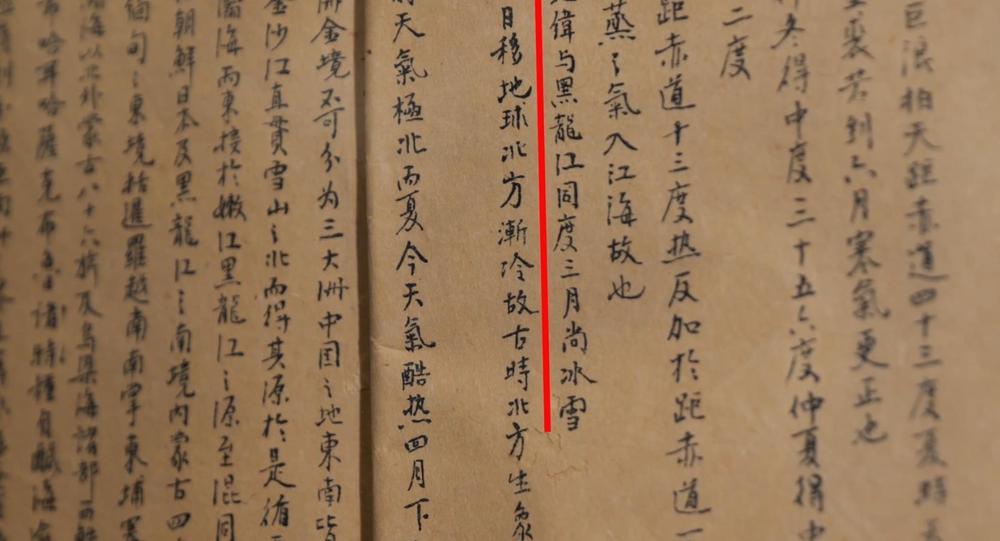 巨浪拍天距赤道四十三度夏
裘苦到六月寒氣更正也
冬得中度三十五六度仲夏得中
二度
距赤道十三度热反加於距赤道一
蒸之氣入江海故也
偉与黑龍江同度三月尚冰雪
移地球北方漸冷故古時北方生象
天氣極北而夏今天氣酷热四月下
金境不可分为三大洲中国之地東南皆
金沙江直貫雪山之北而得其源於是循
海而東接於嫩江黑龍江之源至混同
朝鮮日本及黑龍江之南境内蒙古四
甸之東境括暹羅越南南掌東埔寨
海以北外蒙古八十六旗及烏梁海諸部
哈薩克布魯諸特種自鹹海